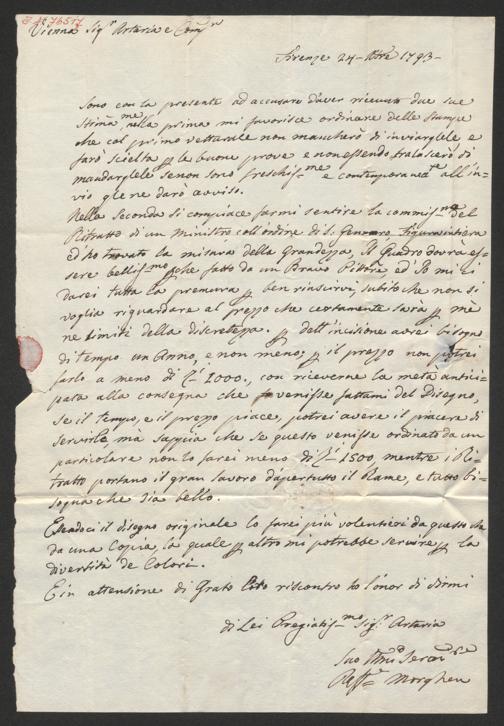 Vienna Sigr Artaria e Compi
Firenze 24 8bre 1793
Sono con la presente ad accusare d'aver ricevuto due sue
Stimme nella prima mi favorisce ordinare delle Stampe
che col primo vetturale non mancherò di inviarglele e
farò scielta p le buone prove e non essendo tralascerò di
mandarglele se non sono freschissme e contemporaneamte all'in-
vio gle ne darò avviso.
Nella Seconda si compiace farmi sentire la commissne del
Ritratto di un Ministro coll'ordine di S. Gennaro figura intiera
ed ho trovato la misura della Grandezza, Il Quadro dovrà es-
sere bellissmo p che fatto da un Bravo Pittore, ed Io mi li
darei tutta la premura p ben riuscirvi, subito che non si
voglia riguardare al prezzo che certamente sarà p mè
ne limiti della discretezza. p dell'incisione avrei bisogno
di tempo un Anno, e non meno; p il prezzo non potrei
farlo a meno di Z. 1000., con riceverne la metà antici-
pata alla consegna che venisse fattami del Disegno,
se il tempo, e il prezzo piace, potrei avere il piacere di
servirle, ma sappia che se questo venisse ordinato da un
particolare non lo farei meno di Z. 1500, mentre i Ri-
tratto portano il gran lavoro d'apertutto il Rame, e tutto bi-
sogna che sia bello.
Essendoci il disegno originale lo farei più volentieri da questo che
da una Copia, la quale p altro mi potrebbe servire p la
diversità de Colori.
E in attenzione di Grato riscontro ho l'onor di dirmi
di Lei Pregiatissmo Sigr Artaria
Suo
Raffe Morghen